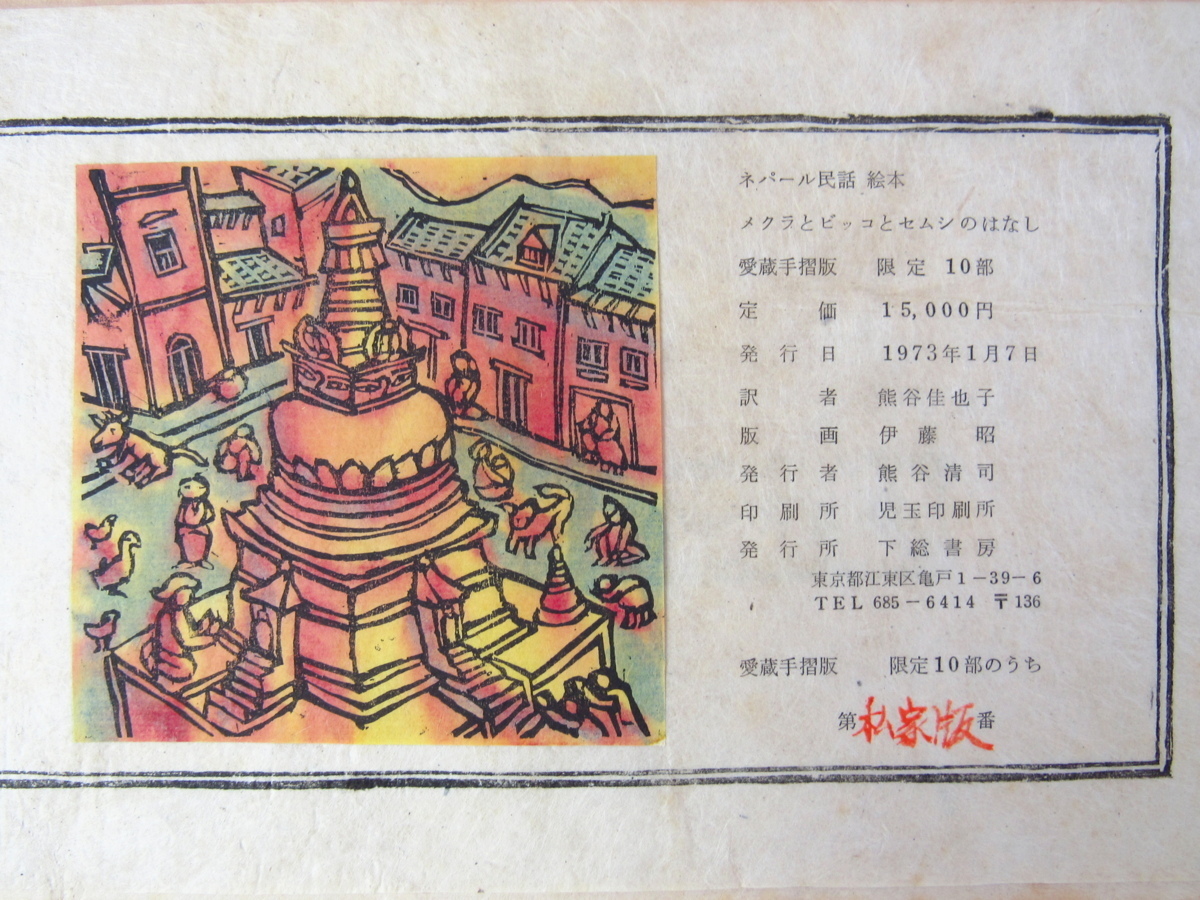 ネパール民話 絵本
メクラとビッコとセムシのはなし
愛蔵手摺版 限定 10部
定価 15,000円
発行日 1973年1月7日
訳者 熊谷佳也子
版画 伊藤昭
発行者 熊谷清司
印刷所 児玉印刷所
発行所 下総書房
東京都江東区亀戸1-39-6
TEL 685-6414 〒136
愛蔵手摺版 限定10部のうち
第私家版番